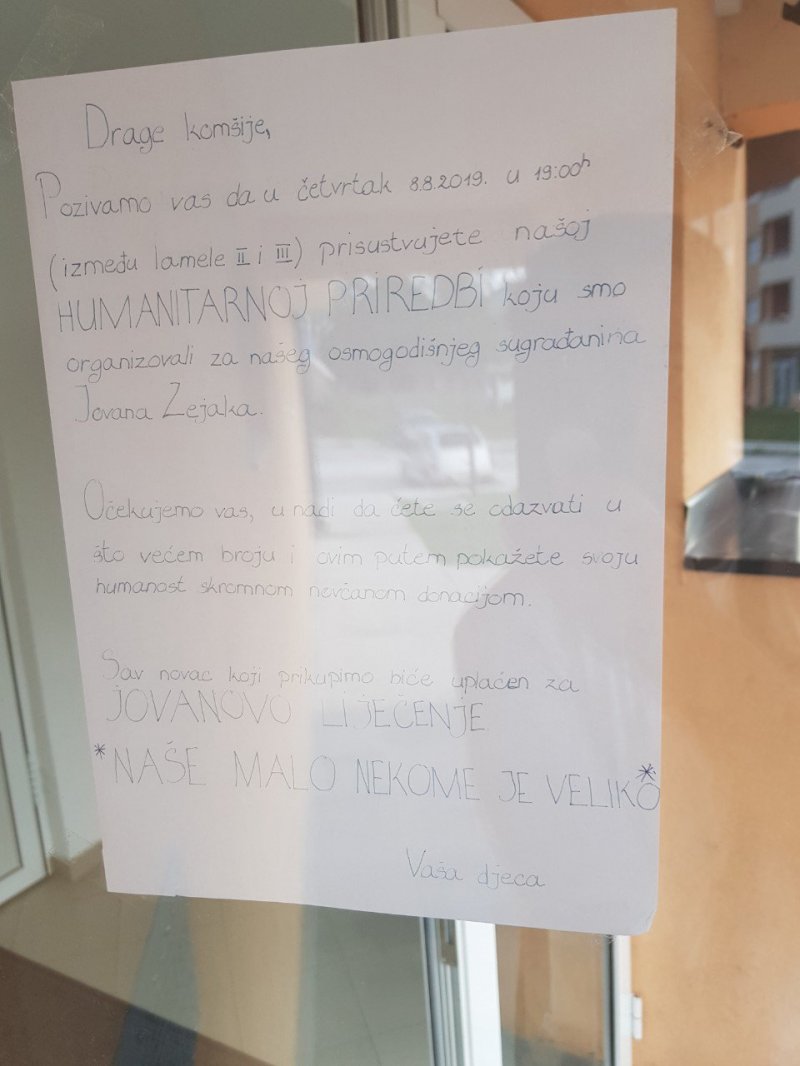 Drage komšije,
Pozivamo vas da u četvrtak 8.8.2019. u 19:00h
(između lamele II i III) prisustvujete našoj
HUMANITARNOJ PRIREDBI koju smo
organizovali za našeg osmogodišnjeg sugrađanina
Jovana Zejaka.
Očekujemo vas, u nadi da ćete se odazvati u
što većem broju i ovim putem pokažete svoju
humanost skromnom novčanom donacijom.
Sav novac koji prikupimo biće uplaćen za
JOVANOVO LIJEČENJE
*NAŠE MALO NEKOME JE VELIKO*
Vaša djeca